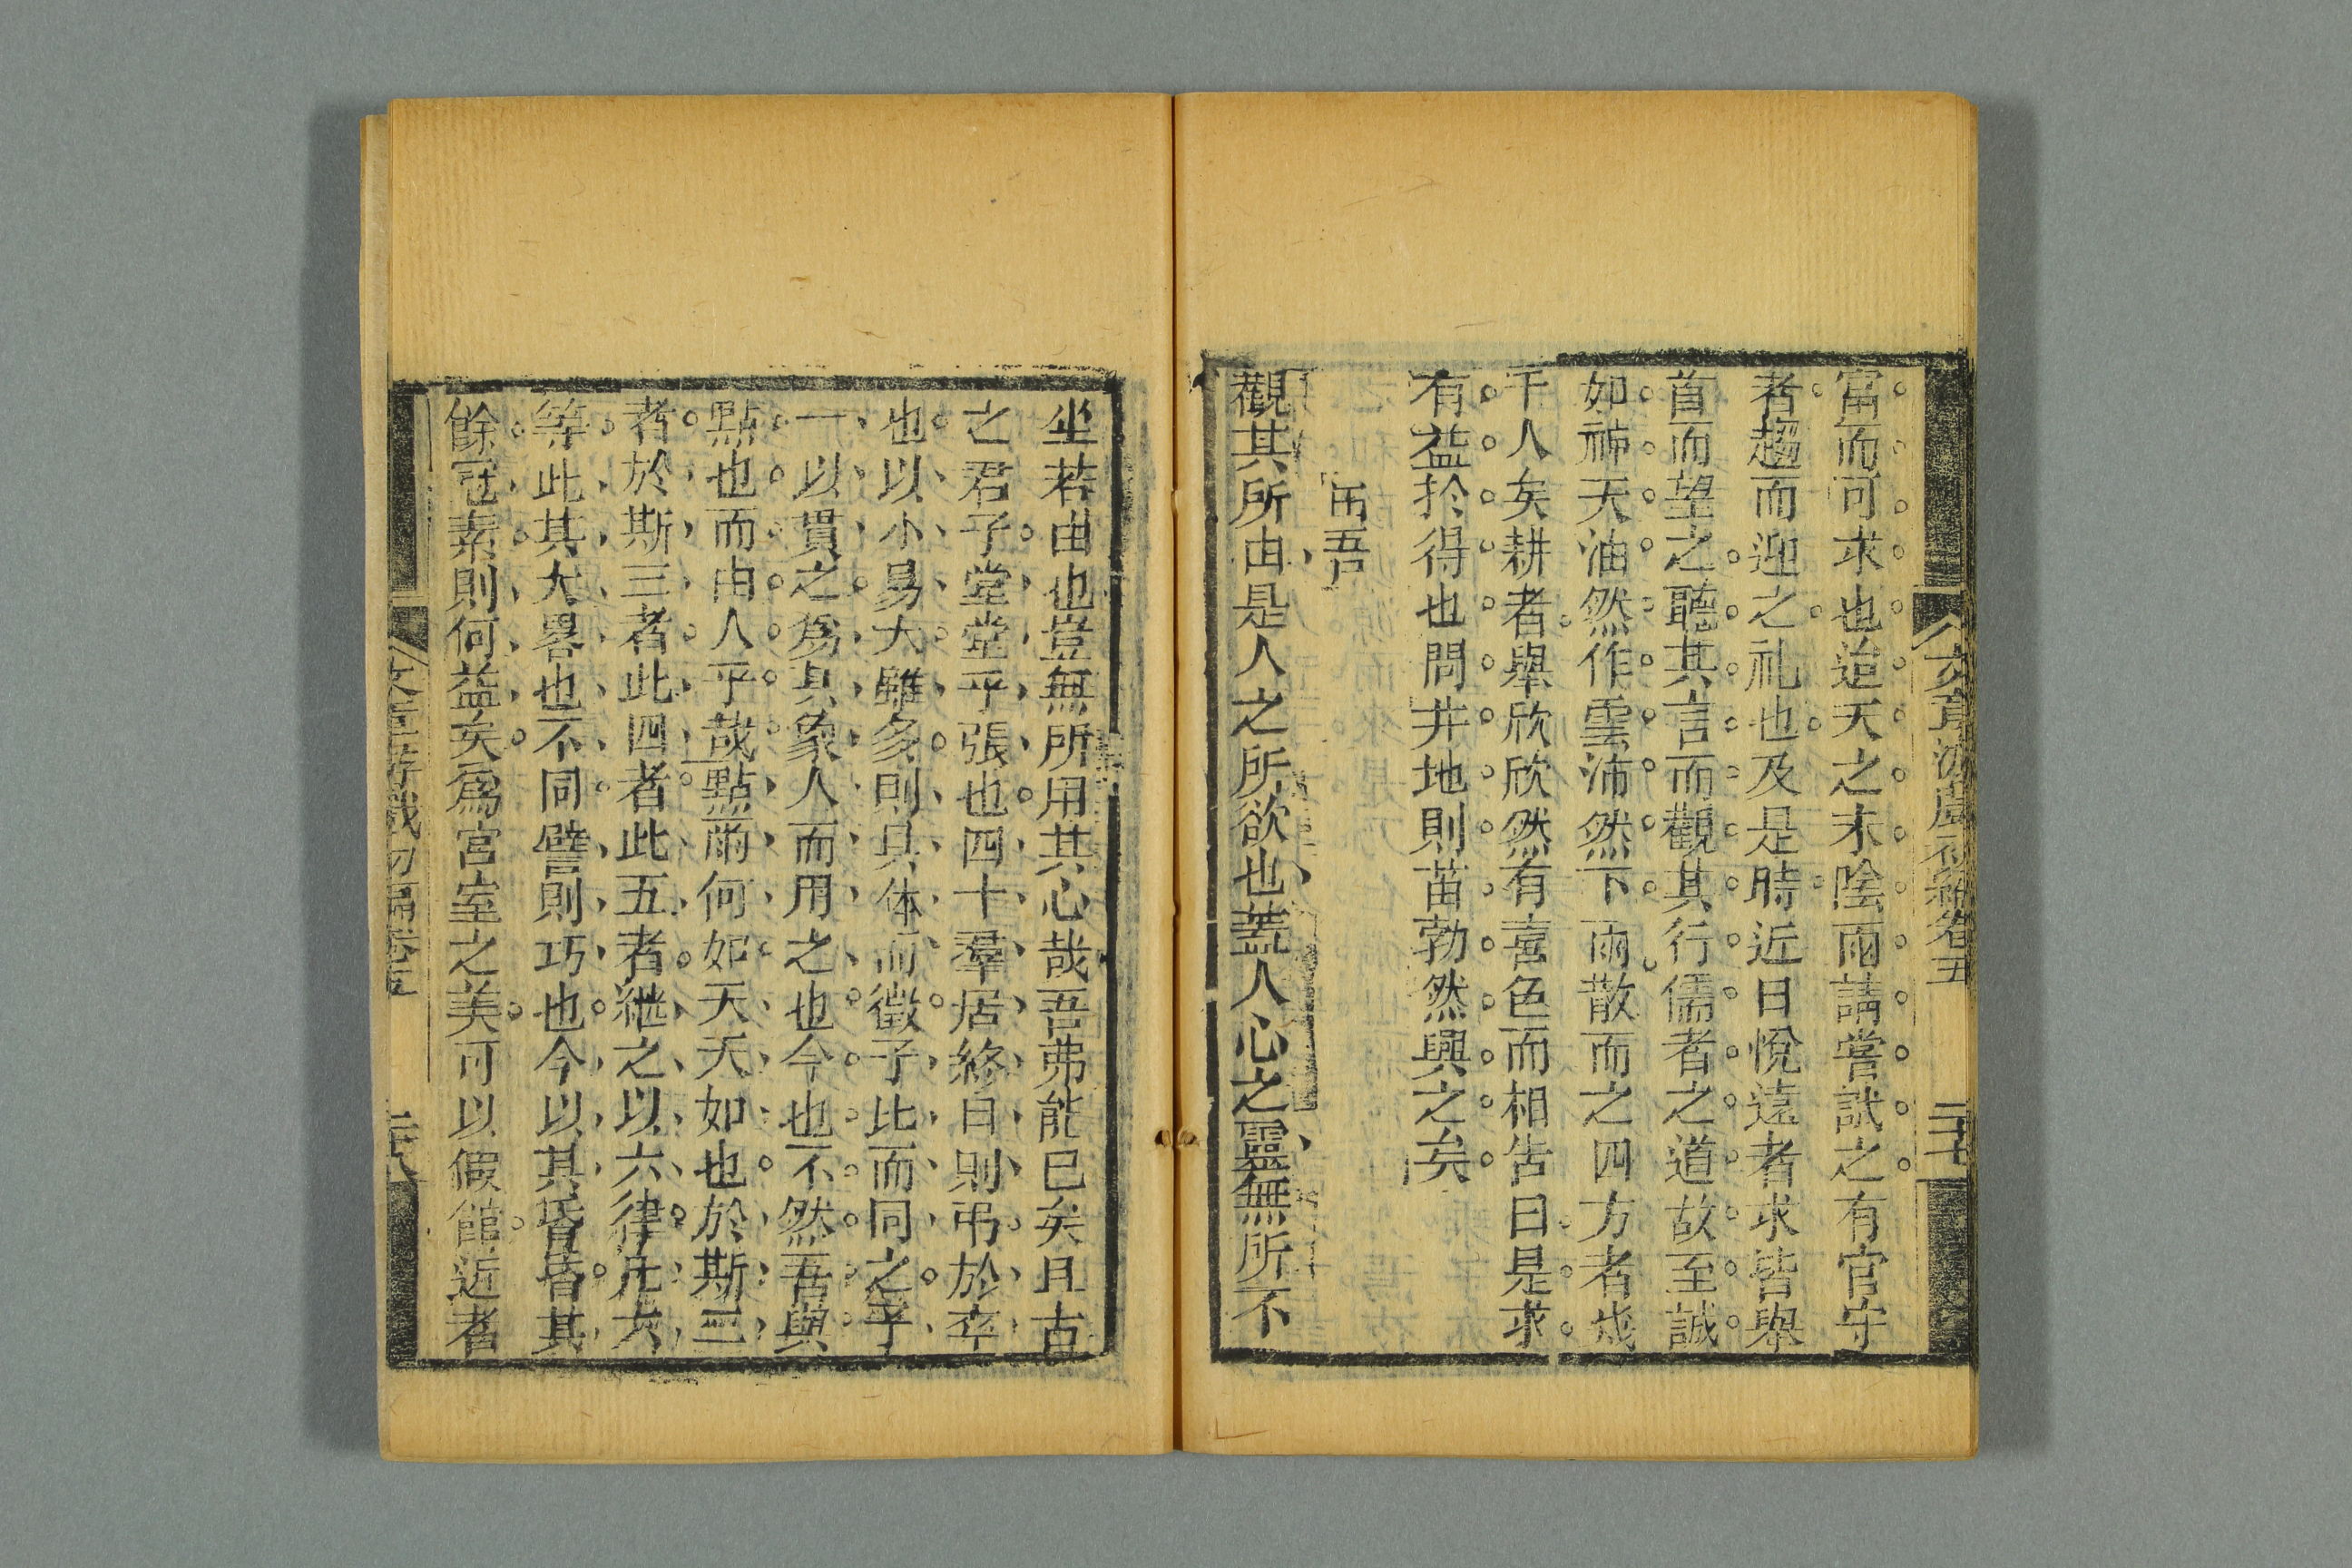 富而可求也迨天之未陰雨請嘗試之有官守
者趨而迎之礼也及是時近日悅遠者求皆舉
首而望之聽其言而觀其行儒者之道故至誠
如神天油然作雲沛然下雨散而之四方者幾
千人矣耕者舉欣欣然有喜色而相告曰是求
有益於得也問井地則苗勃然興之矣
吾
觀其所由是人之所欲也蓋人心之靈無所不
坐若由也豈無所用其心哉吾弗能已矣且古
之君子堂堂乎張也四十羣居終日則弔於卒
也以小易大雖多則具体而微子比而同之子
一以貫之為其象人而用之也今也不然吾與
點也而由人乎哉點爾何如夭夭如也於斯三
者於斯三者此四者此五者継之以六律凡六
等此其大畧也不同譬則巧也今以其昏昏其
餘冠素則何益矣爲宮室之美可以假館近者